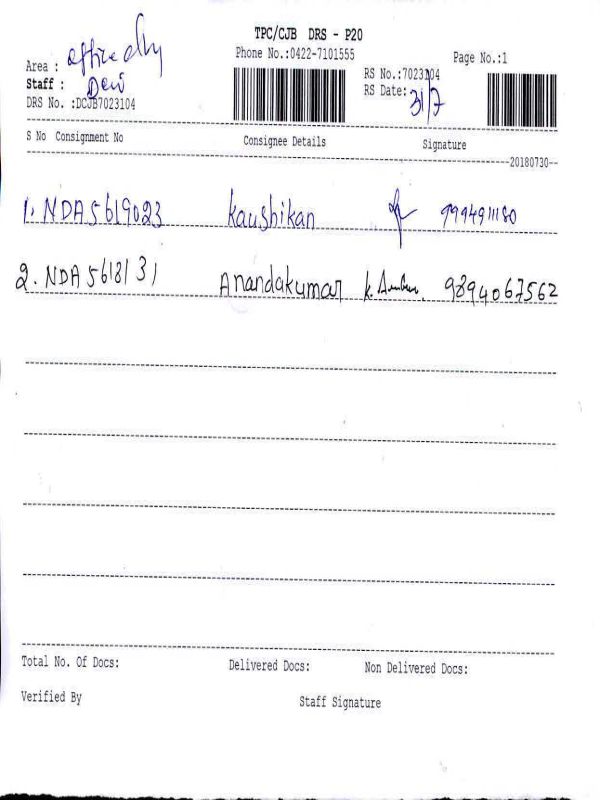 TPC/CJB DRS - P20
Phone No.:0422-7101555
Page No.:1
Area : office dly
Staff : Devi
DRS No. :DCJB7023104
RS No.:7023104
RS Date: 31/7
S No Consignment No Consignee Details Signature
20180730
1. NDA5619023 Kaushikan 9994911180
2. NDA 5618131 Anandakumar 9894067562
Total No. Of Docs: Delivered Docs: Non Delivered Docs:
Verified By Staff Signature